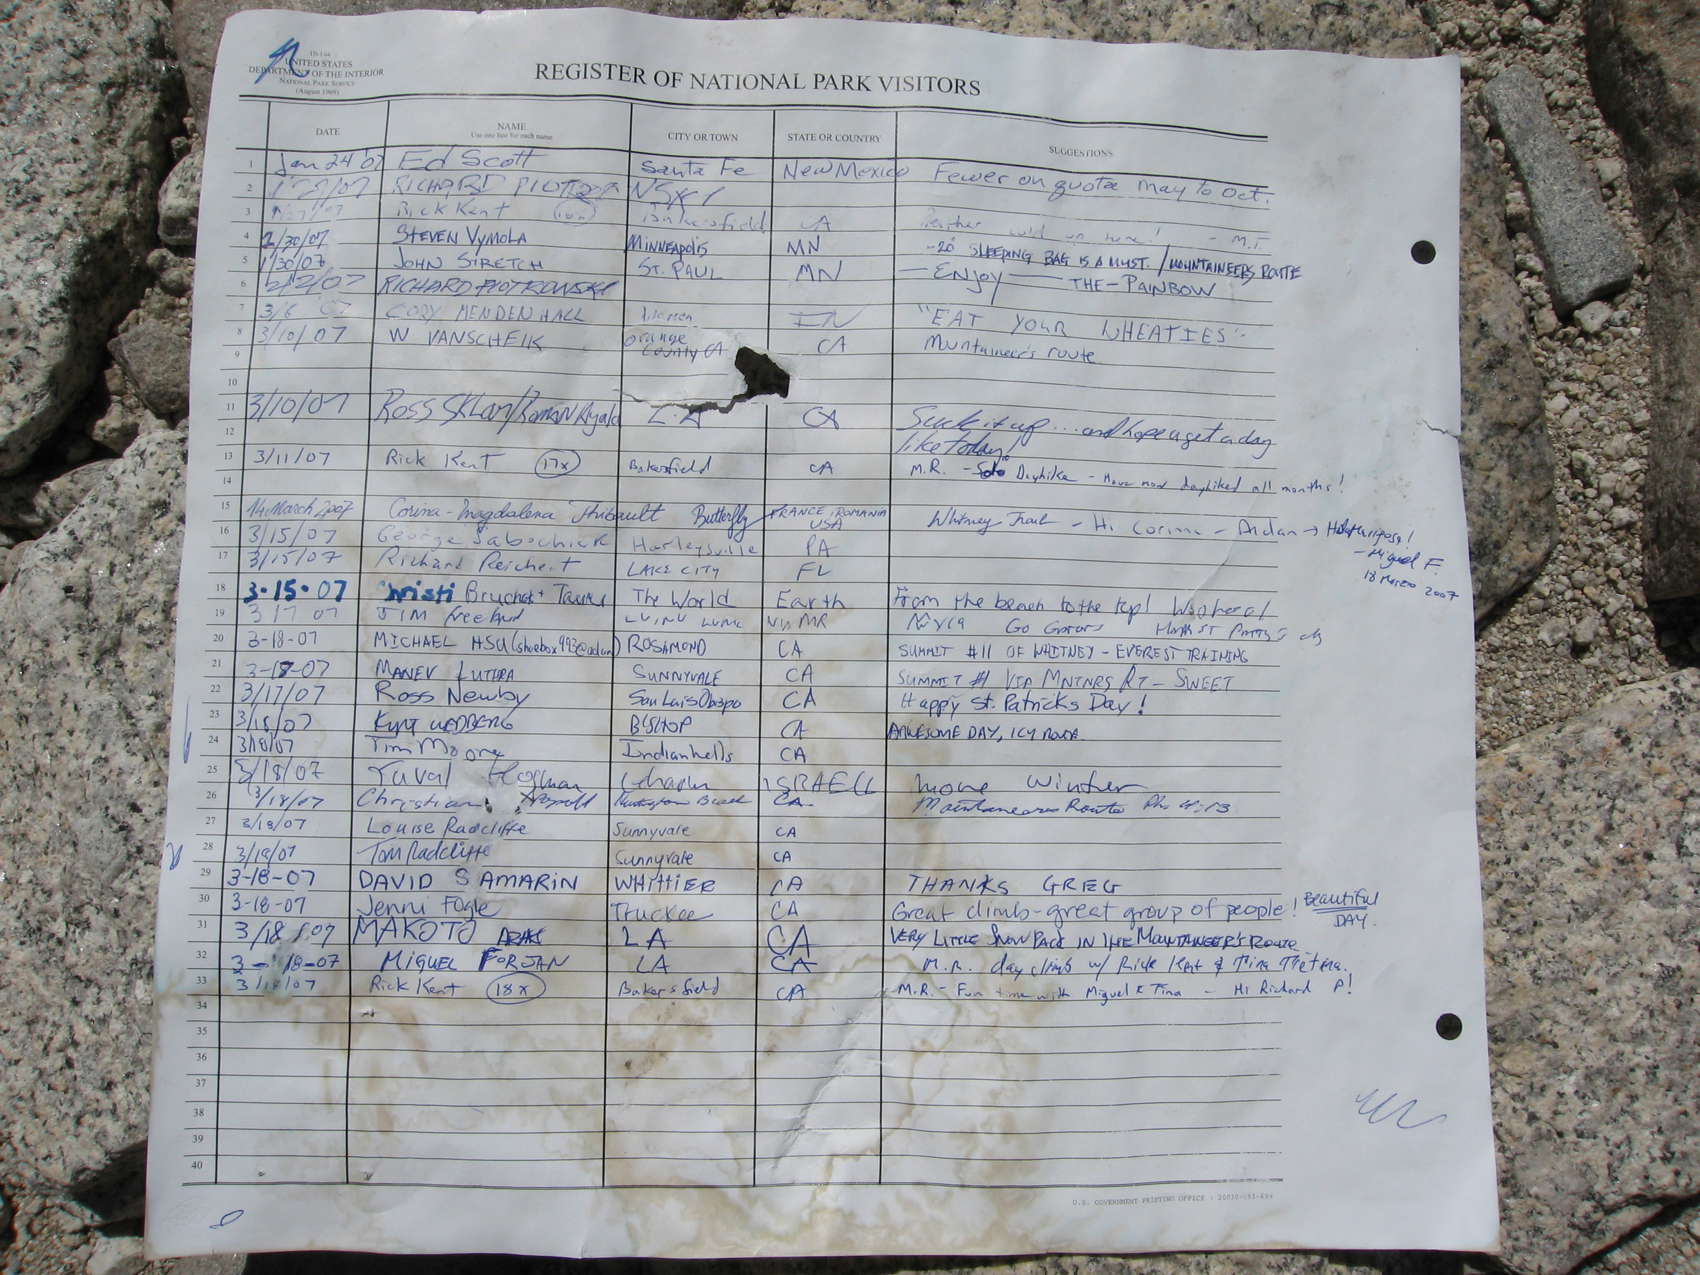 UNITED STATES
DEPARTMENT OF THE INTERIOR
NATIONAL PARK SERVICE
(August 1969)
REGISTER OF NATIONAL PARK VISITORS
DATE NAME CITY OR TOWN STATE OR COUNTRY SUGGESTIONS
Use one line for each name
1 Jan 24 '07 Ed Scott Santa Fe New Mexico Fewer on quota may to Oct.
2 /07 RICHARD
3 Rick Kent (16x) Bakersfield CA
4 2/30/07 STEVEN VYMOLA MINNEAPOLIS MN -20° SLEEPING BAG IS A MUST. / MOUNTAINEERS ROUTE
5 1/30/07 JOHN STRETCH ST. PAUL MN — ENJOY — THE - PAINBOW
6 2/2/07 RICHARD PIOTROWSKI
7 3/6 07 CORY MENDENHALL IN "EAT YOUR WHEATIES"
8 3/10/07 W VANSCHEIK Orange CA Mountaineer's route
County CA
9
10
11 3/10/07 Ross Sklar/Roman L.A CA Suck it up... and hope u get a day
12 like today!
13 3/11/07 Rick Kent (17x) Bakersfield CA M.R. - Solo Dayhike - Have now dayhiked all months!
14
15 14 March 2007 Corina-Magdalena Thibault Butterfly FRANCE, ROMANIA Whitney Trail - Hi Corinna - Aidan →
USA
- Miguel F.
18 Marzo 2007
16 3/15/07 George Harleysville PA
17 3/15/07 Richard Reichert LAKE CITY FL
18 3-15-07 Christi The World Earth From the beach to the top!
19 3 17 07 JIM Go Gators
20 3-18-07 MICHAEL HSU ROSAMOND CA SUMMIT #11 OF WHITNEY - EVEREST TRAINING
21 3-18-07 MANEV LUTHRA SUNNYVALE CA SUMMIT #1 VIA MNTNRS RT - SWEET
22 3/17/07 Ross Newby San Luis Obispo CA Happy St. Patricks Day!
23 3/18/07 KURT WEDBERG BISHOP CA AWESOME DAY, ICY ROUTE
24 3/18/07 Tim Moore Indianwells CA
25 3/18/07 Yuval ISRAELL more winter
26 3/18/07 Christian Huntington Beach CA. Mountaineers Route
27 3/18/07 Louise Radcliffe Sunnyvale CA
28 3/18/07 Tom Radcliffe Sunnyvale CA
29 3-18-07 DAVID SAMARIN WHITTIER CA THANKS GREG
30 3-18-07 Jenni Fogle Truckee CA Great climb - great group of people! BEAUTIFUL
DAY.
31 3/18/07 MAKOTO LA CA VERY LITTLE SNOW PACK IN THE MOUNTAINEER'S ROUTE
32 3-18-07 MIGUEL FORJAN LA CA M.R. day climb w/ Rick Kent & Tina
33 3/18/07 Rick Kent (18x) Bakersfield CA M.R. - Fun time with Miguel & Tina - Hi Richard P!
34
35
36
37
38
39
40
U.S. GOVERNMENT PRINTING OFFICE